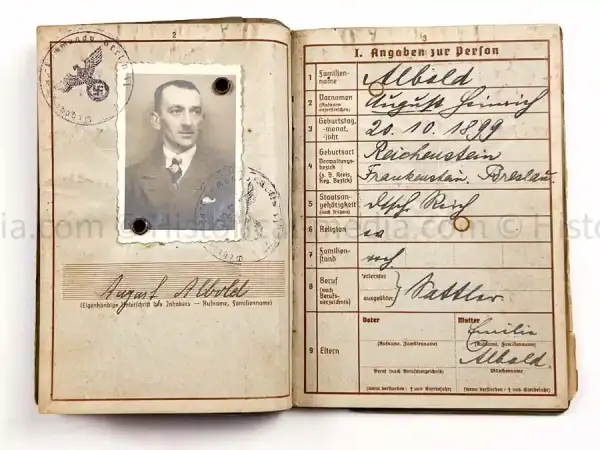 2
August Albold
(Eigenhändige Unterschrift des Inhabers — Rufname, Familienname)
3
I. Angaben zur Person
1 Familien-
name
Albold
2 Vornamen
(Rufname
unterstreichen)
August Heinrich
3 Geburtstag,
-monat,
-jahr
20. 10. 1899
4 Geburtsort
Verwaltungs-
bezirk
(z. B. Kreis,
Reg.-Bezirk)
Reichenstein
Frankenstein, Breslau.
5 Staatsan-
gehörigkeit
(auch frühere)
Dtsch. Reich
6 Religion
ev
7 Familien-
stand
verh
8 Beruf
(nach
Berufs-
verzeichnis)
erlernter
ausgeübter
Sattler
9 Eltern
Vater
Mutter
Emilie
(Rufname, Familienname)
(Rufname, Familienname)
Albold.
Beruf (nach Berufsverzeichnis)
Mädchenname
(wenn verstorben: † und Sterbejahr)
(wenn verstorben: † und Sterbejahr)